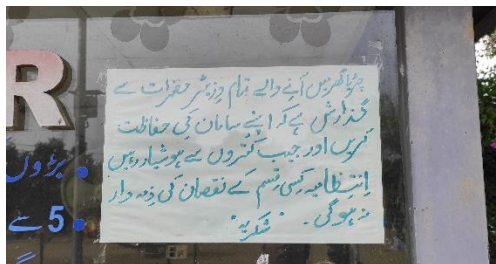 چڑیا گھر میں آنے والے تمام وزیٹر حضرات سے
گذارش ہے کہ اپنے سامان کی حفاظت
کریں اور جیب کتروں سے ہوشیار رہیں
انتظامیہ کسی قسم کے نقصان کی ذمہ دار
نہ ہوگی۔ "شکریہ"
R
بڑوں
5 سے